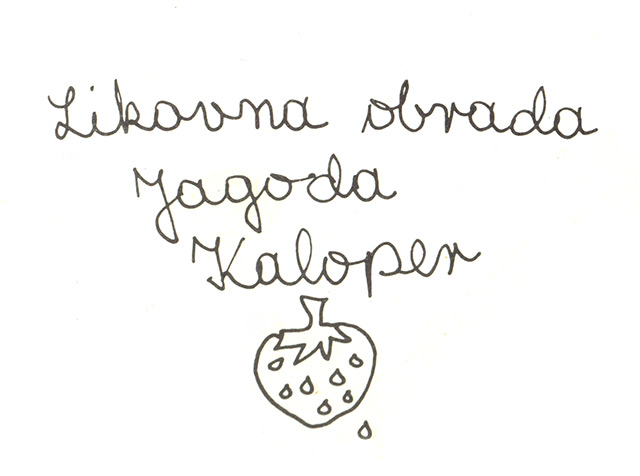 Likovna obrada
Jagoda
Kaloper